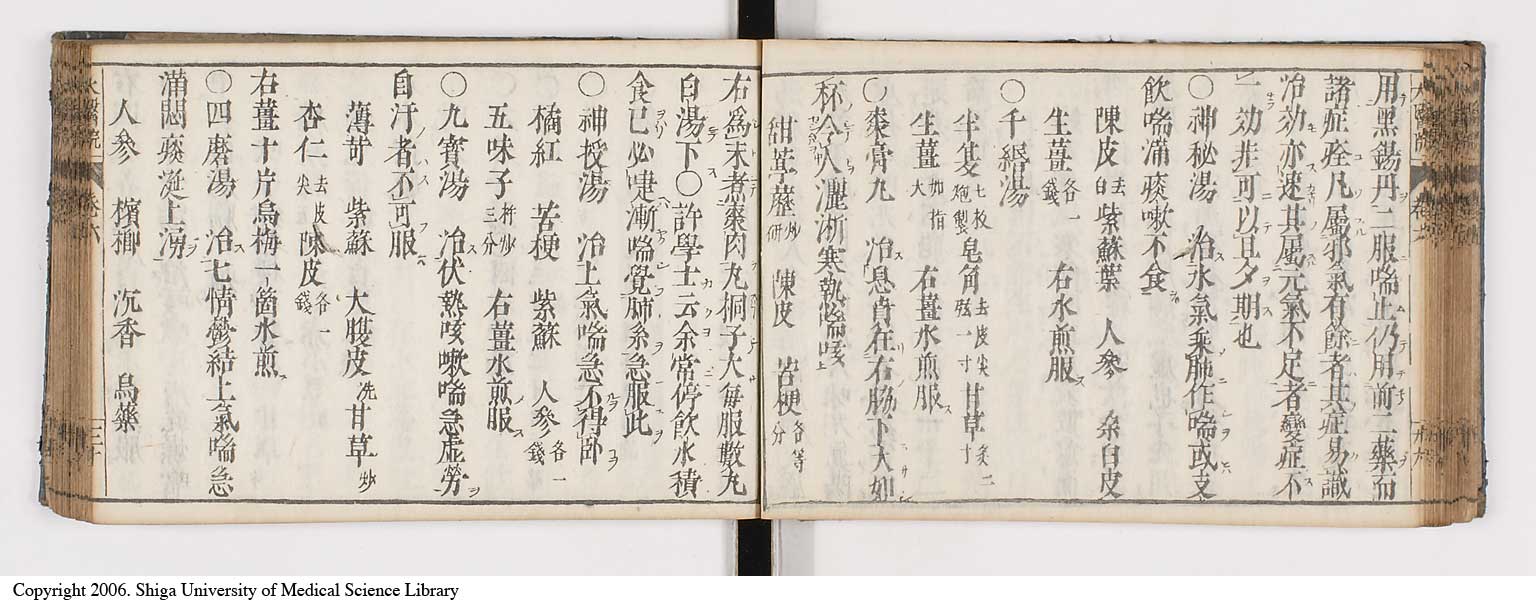 用黑錫丹二服喘止仍用前二藥而
諸症痊凡屬邪氣有餘者其症易識
治効亦速其屬元氣不足者變症不
一効非可以旦夕期也
〇神秘湯 治水氣乘肺作喘或支
飲喘滿痰嗽不食
陳皮去白 紫蘇葉 人參 桑白皮
生薑各一錢 右水煎服
〇千緡湯
半夏七枚炮製 皂角去皮尖弦一寸 甘草炙二寸
生薑如指大 右薑水煎服
〇棗膏丸 治息賁在右脇下大如
杯令人灑淅寒熱喘咳
甜葶藶炒研 陳皮 苦梗各等分
右爲末煮棗肉丸桐子大每服數丸
白湯下〇許學士云余常停飲水積
食已必嚏漸喘覺肺系急服此
〇神授湯 治上氣喘急不得卧
橘紅 苦梗 紫蘇 人參各一錢
五味子杵炒三分 右薑水煎服
〇九寳湯 治伏熱咳嗽喘急虚勞
自汗者不可服
薄苛 紫蘇 大腹皮洗 甘草炒
杏仁去皮尖 陳皮各一錢
右薑十片烏梅一箇水煎
〇四磨湯 治七情鬱結上氣喘急
滿悶痰凝上湧
人參 檳榔 沉香 烏藥